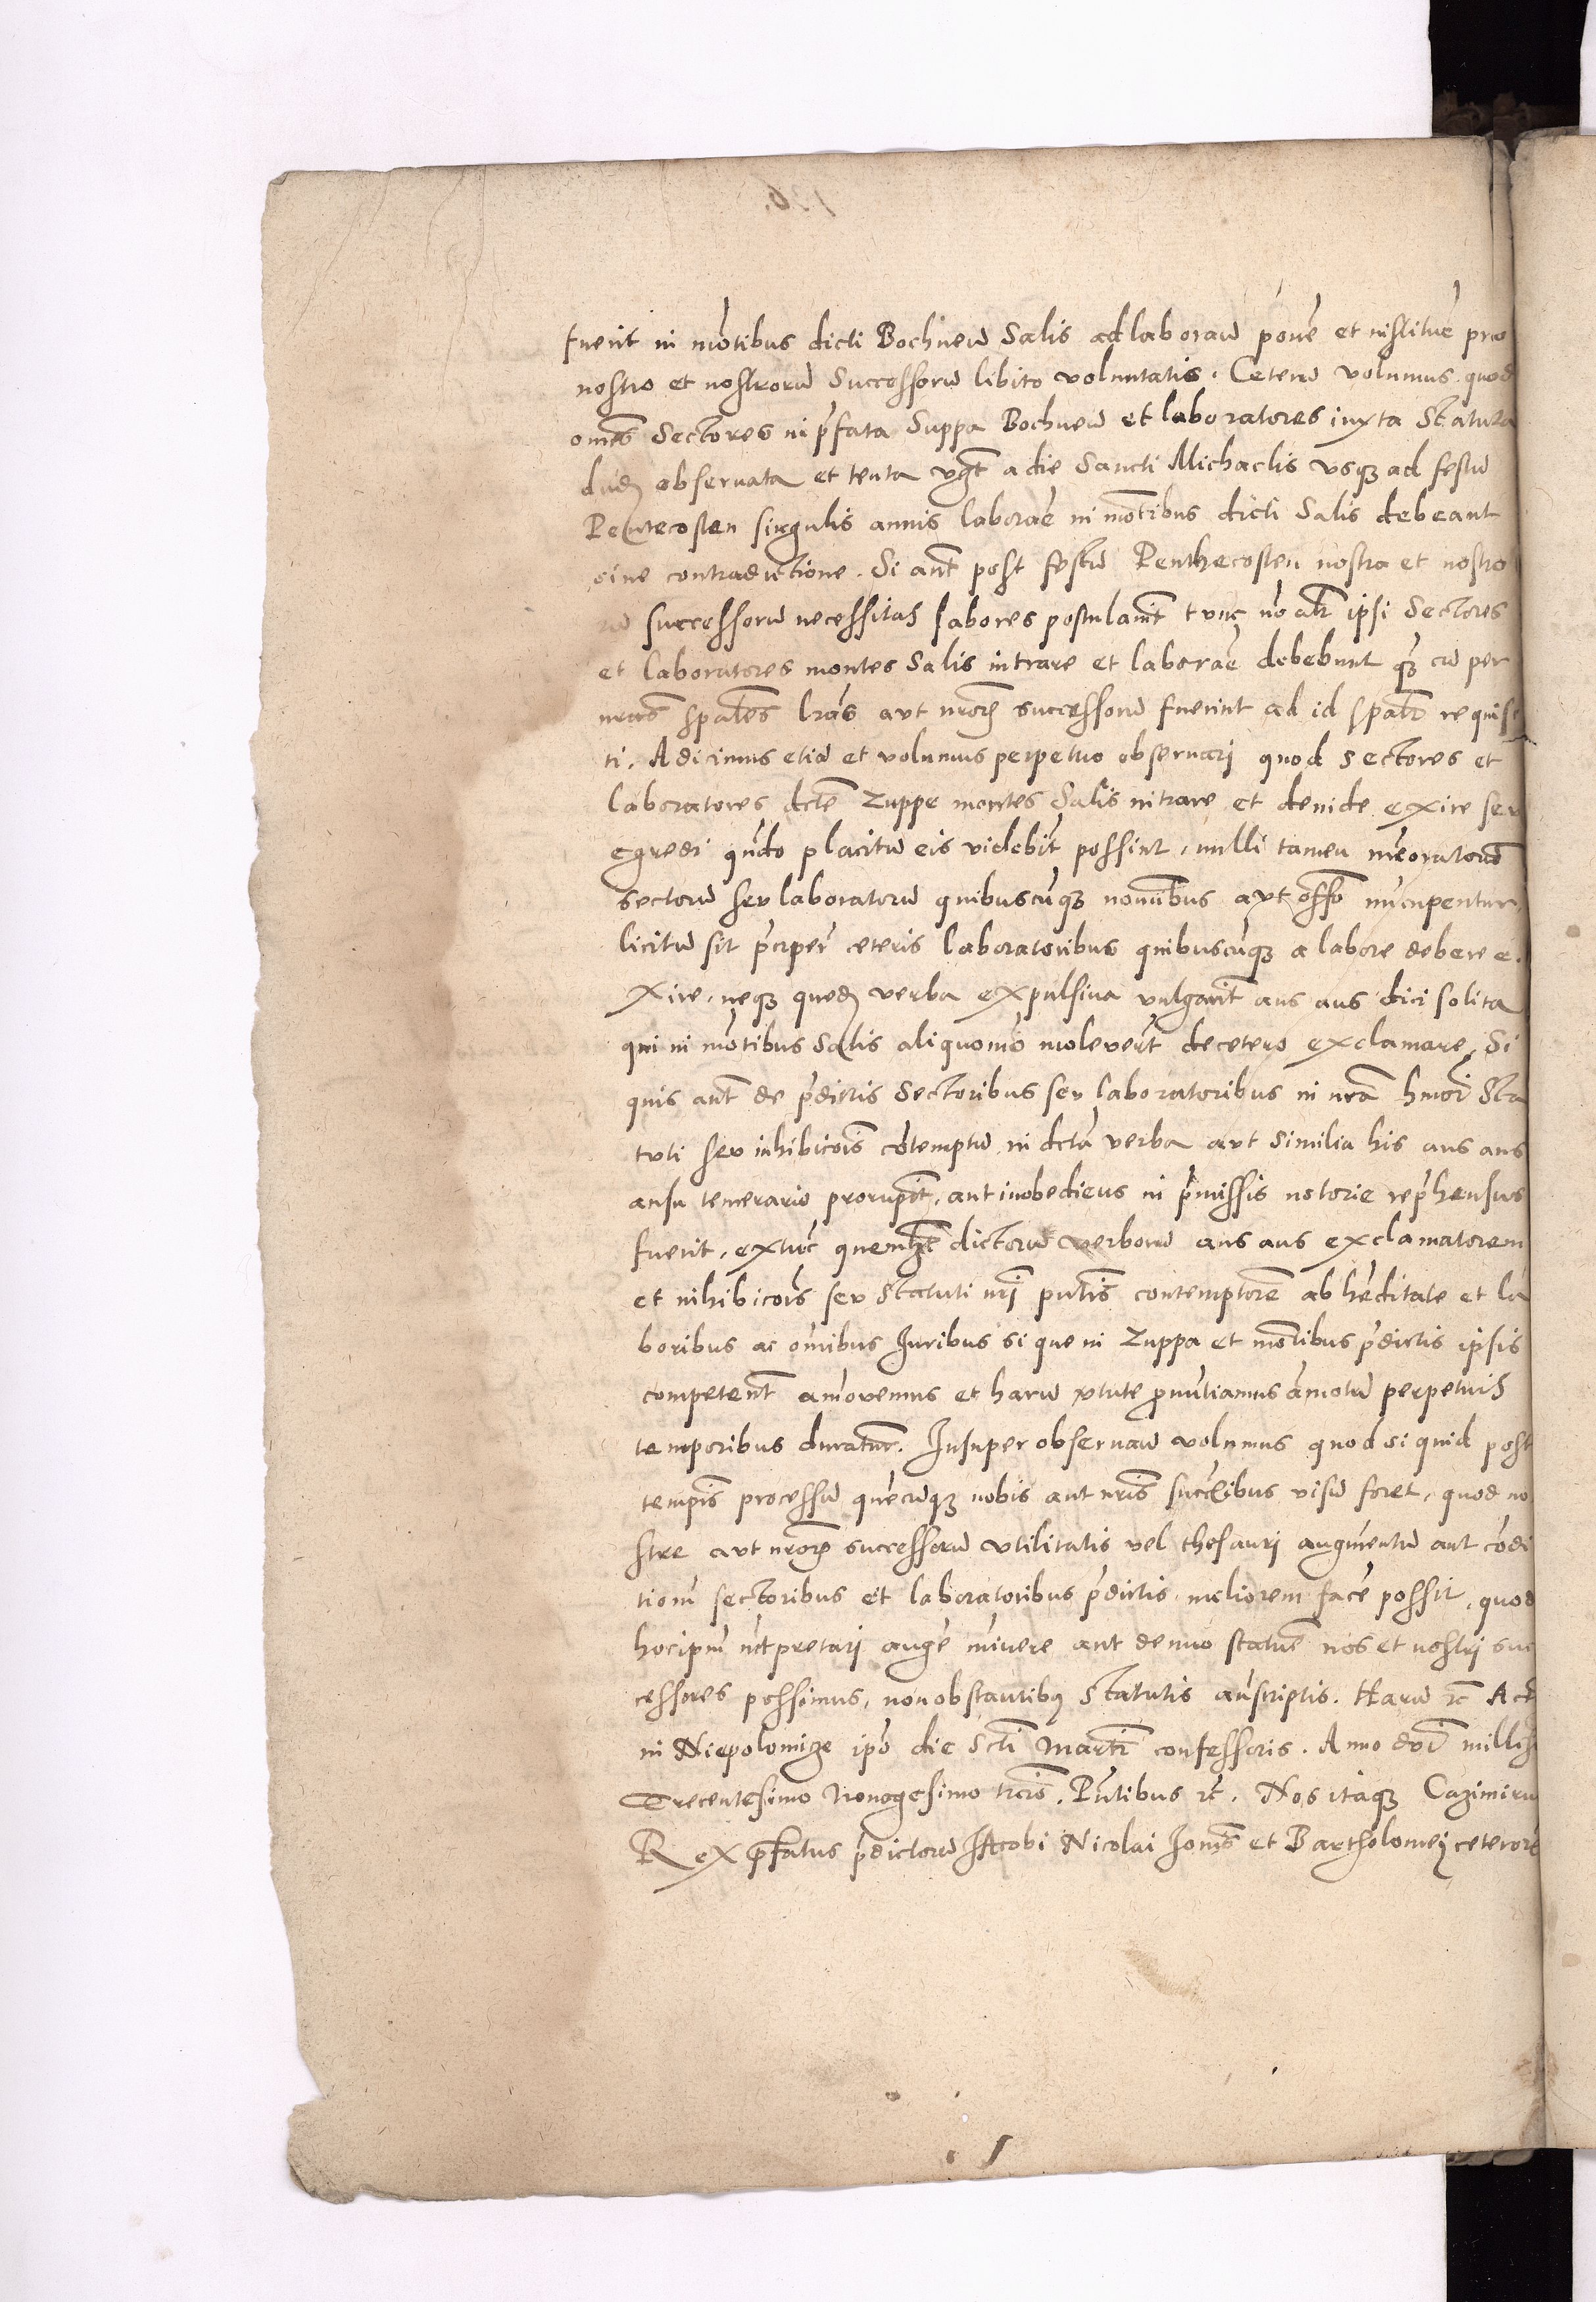 fuerit in mōtibus dicti Bochneū Salis ad laborañ ponē et īstituē pro
nostro et nostrorū Successorū libito voluntatis. Ceterū volumus quod
om̄es Sectores in p̄fata Suppa Bochneū et laboratores iuxta Statuta
observata et tenta a die Sancti Michaelis vsq₃ ad festū
Pentecosten singulis annis laborāe in mōtibus dicti Salis debeant
sine contradictione. Si aūt post festū Penthecosten nostra et nostro
rū successorū necessitas labores postulaūit tūc nō alr̄ ipsi Sectores
et laboratores montes Salis intrare et laborāe debebunt cū per
nrās sp̄ales lrās aut nrōꝝ successorū fuerint ad id sp̄alr̄ requisi
ti. Adicimus etiā et volumus perpetuo observari quod Sectores et
laboratores dictē Zuppe montes Salis intrare et deinde exire seu
egredi qn̄do placitū eis videbit̄ possint, nulli tamen mēoratorū
sectorū seu laboratorū quibuscūq₃ nomībus aut offō nūcupentur
licitū sit p̄cipeř ceteris laboratoribus quibuscūq₃ a labore debere e
xire. neq₃ quedꝫ verba expulsiua vulgarit̄ aus aus dici solita
qui in mōtibus Salis aliquomō inoleuerūt decetero exclamare. Si
quis aūt de p̄dictis Sectoribus seu laboratoribus in nrām hmōi Sta
tuti seu inhibicōis cōtemptū, in dictā verba aut similia his aus aus
ausu temerario prorupit̄, aut inobediens in p̄missis notorie rep̄hensus
fuerit, extūc quemlꝫt dictorū verborū aus aus exclamatorem
et inhibicōis seu Statuti nrī pn̄tis contemptorē ab hēditate et la
boribus ac om̄ibus Iuribus si que in Zuppa et mōtibus p̄dictis ipsis
competent̄ amouemus et harū v̄tute ꝓnūtiamus āmotū perpetuis
temporibus duratur̄. Insuper obseruañ volumus quod si quid post
tempīs processū quecūq₃ nobis aut nrīs succ̄ibus visū foret, quod no
stre aut nrōꝝ successorū vtilitatis vel thesauri augmentū aut cōdi
tionē sectoribus et laboratoribus p̄dictis meliorem facē possit, quod
hocip̄m īterpretari augē mīuere aut denuo statuē nos et nostri suc
cessores possimus, non obstantibꝫ Statutis an̄scriptis. Harū ꝛc̄ Act
in Niepolomize ipō die Scti Martī confessoris. Anno dōi millis
Trecentesimo Nonogesimo tr̄cio. Pn̄tibus ꝛc̄. Nos itaq₃ Cazimiru
Rex p̄fatus p̄dictorū Iacobi Nicolai Ioānis et Bartholomei ceteror